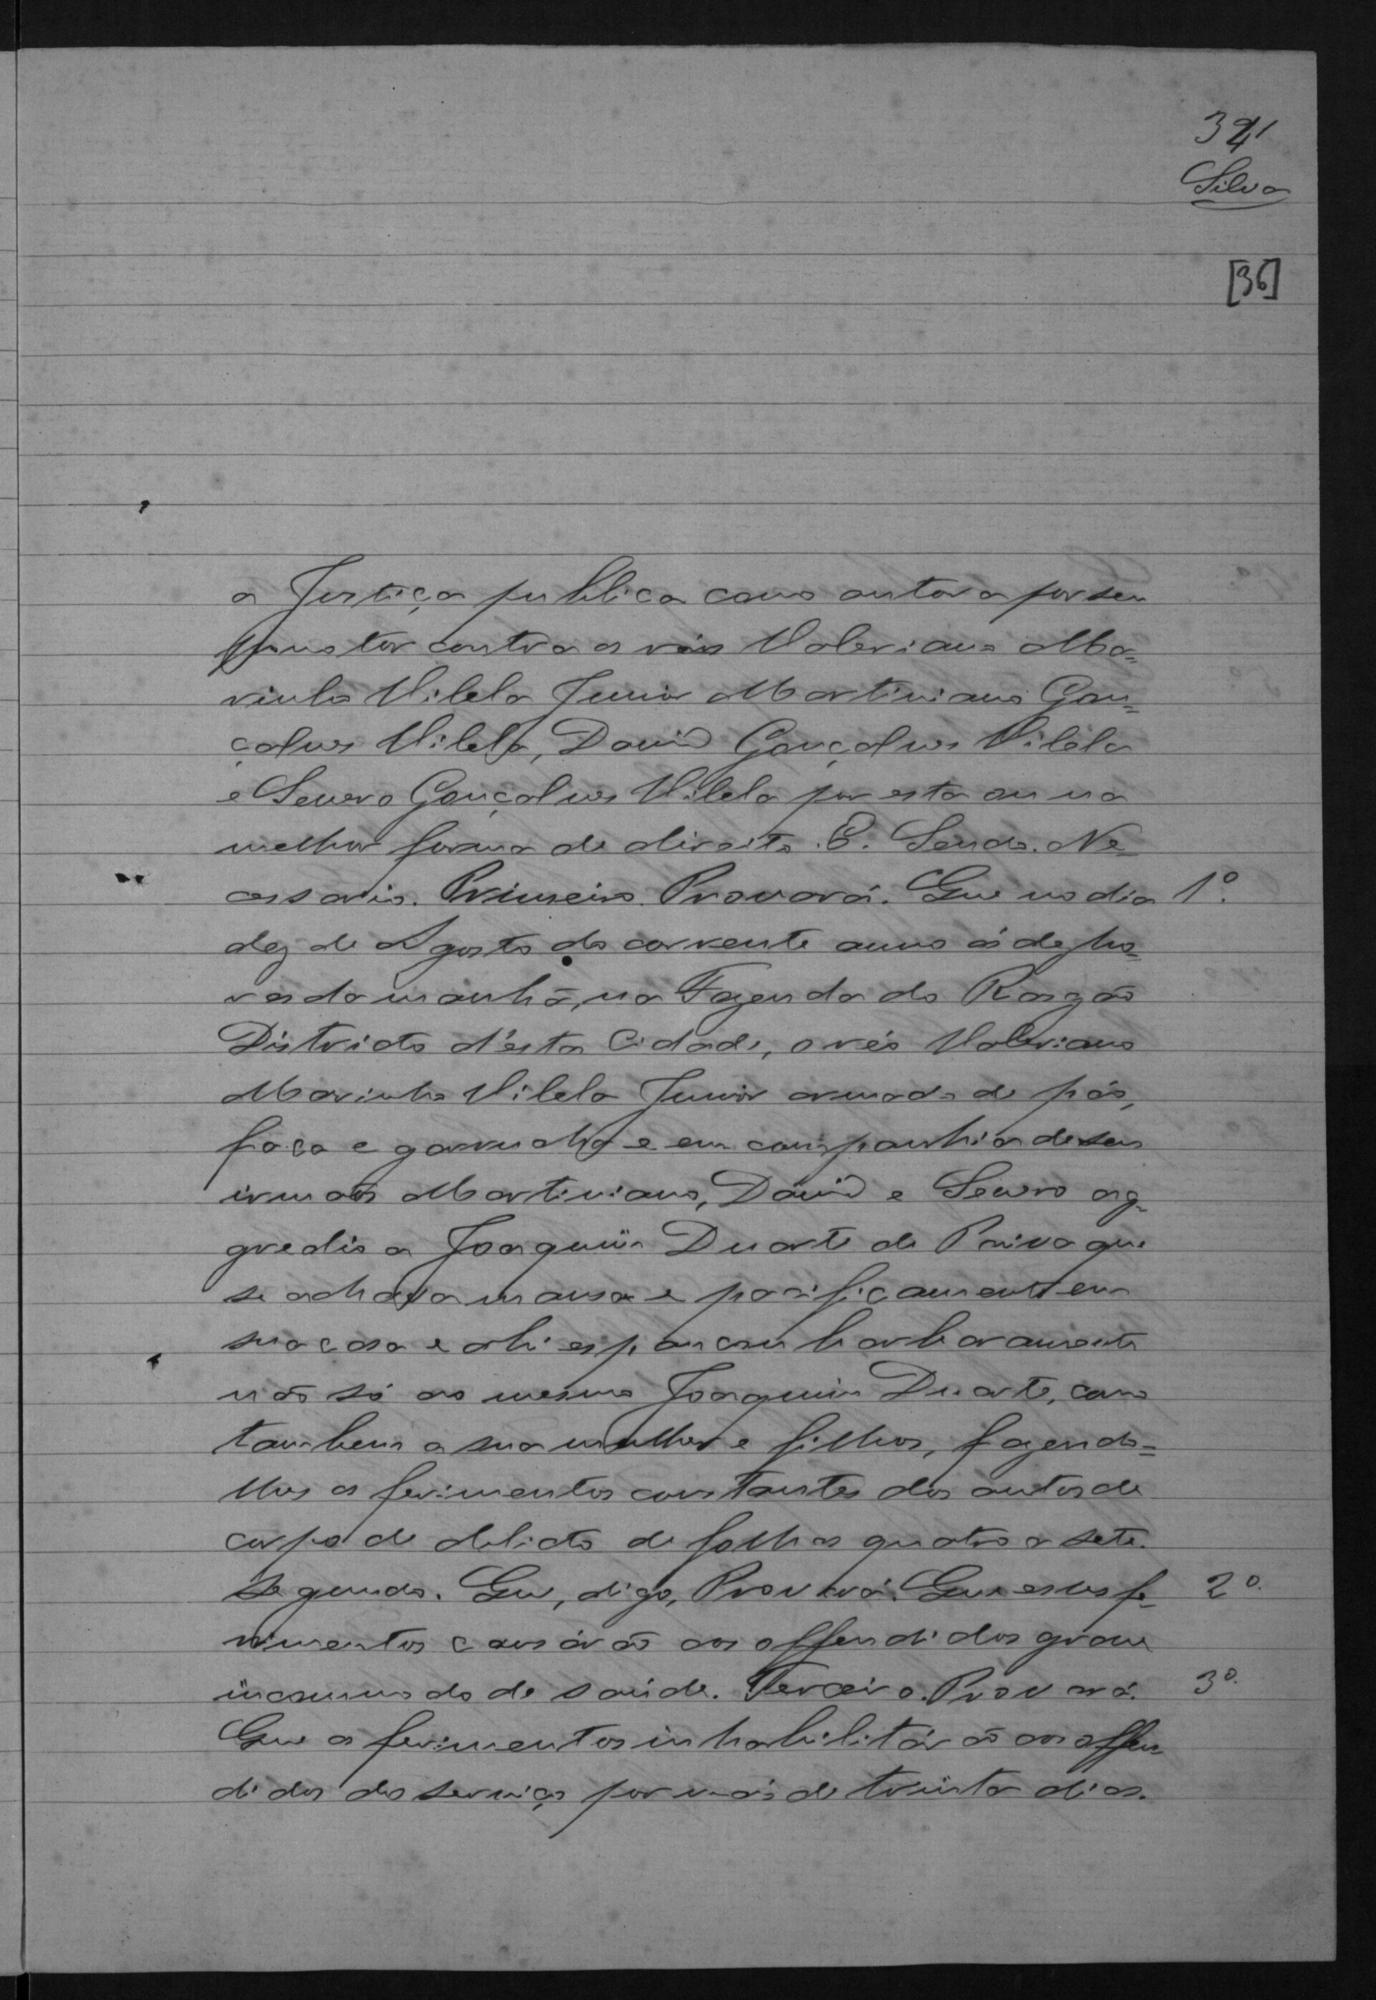 341
Silva
[36]
a Justiça publica como autora por seu
promotor contra os réos Valeriano Ma=
rinho Vilela Junior Martiniano Gon=
çalves Vilela, David Gonçalves Vilela
e Severo Gonçalves Vilela por esta ou na
melhor forma de direito. E. Sendo. Ne=
cessario. Primeiro. Provará. Que no dia 1º.
dez de Agosto do corrente anno ás dez ho=
ras da manhã, na Fazenda do Rasgão
Districto d'esta Cidade, o réo Valeriano
Marinho Vilela Junior armado de páo,
faca e garrucha e em companhia de seus
irmãos Martiniano, David e Severo ag=
gredio a Joaquim Duarte de Paiva que
se achava mansa e pacificamente em
sua casa e ahi espancou barbaramente
não só ao mesmo Joaquim Duarte, como
tambem a sua mulher e filhos, fazendo=
lhes os ferimentos constantes dos autos de
corpo de delicto de folhas quatro a sete.
Segundo. Que, digo, Provará. Que esses fe= 2º.
rimentos causárão aos offendidos grave
incommodo de saúde. Terceiro. Provará. 3º.
Que os ferimentos inhabilitárão aos offen
didos do serviço por mais de trinta dias.